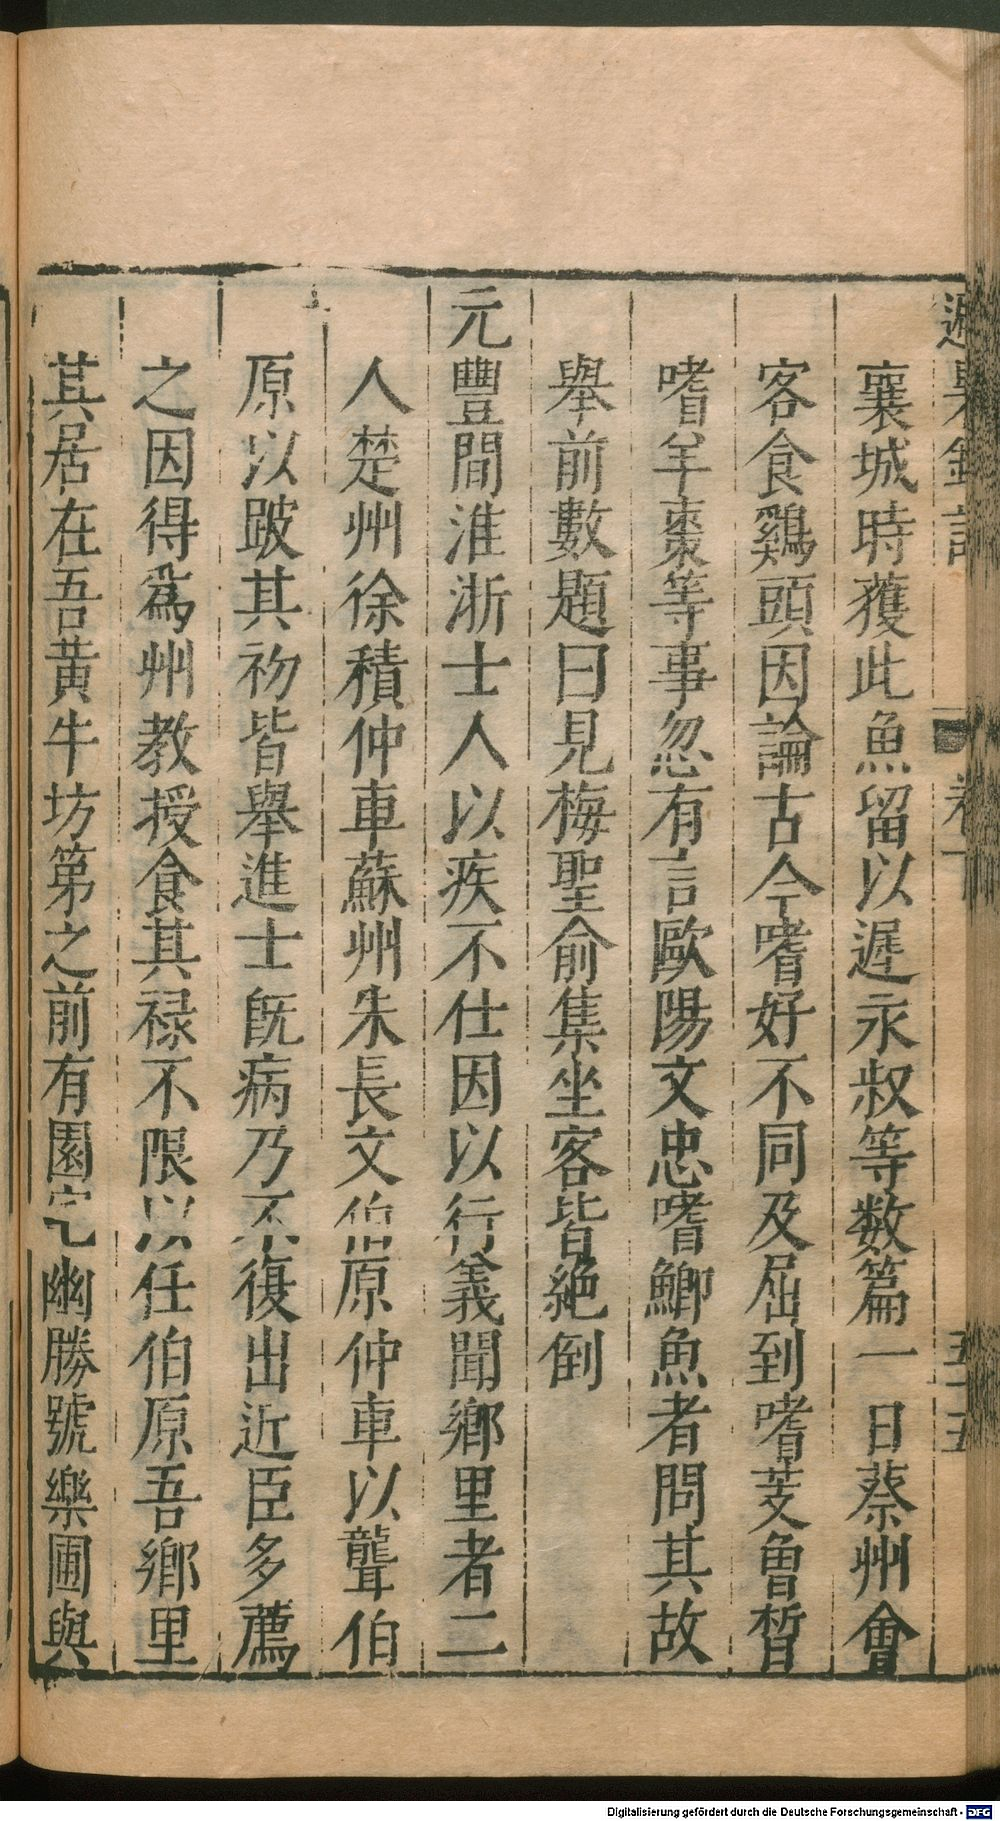 避暑録話 卷下 五十五
襄城時獲此魚留以遲永叔等數篇一日蔡州會
客食鷄頭因論古今嗜好不同及屈到嗜芰曾晳
嗜羊棗等事忽有言歐陽文忠嗜鯽魚者問其故
舉前數題曰見梅聖俞集坐客皆絕倒
元豐間淮浙士人以疾不仕因以行義聞鄉里者二
人楚州徐積仲車蘇州朱長文伯原仲車以聾伯
原以跛其初皆舉進士旣病乃不復出近臣多薦
之因得爲州教授食其祿不限以任伯原吾鄉里
其居在吾黃牛坊第之前有園宅幽勝號樂圃與
Digitalisierung gefördert durch die Deutsche Forschungsgemeinschaft - DFG